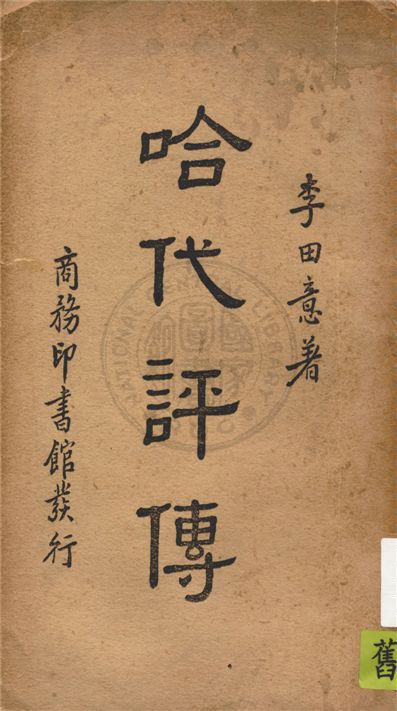 李田意著
哈代評傳
商務印書館發行
舊